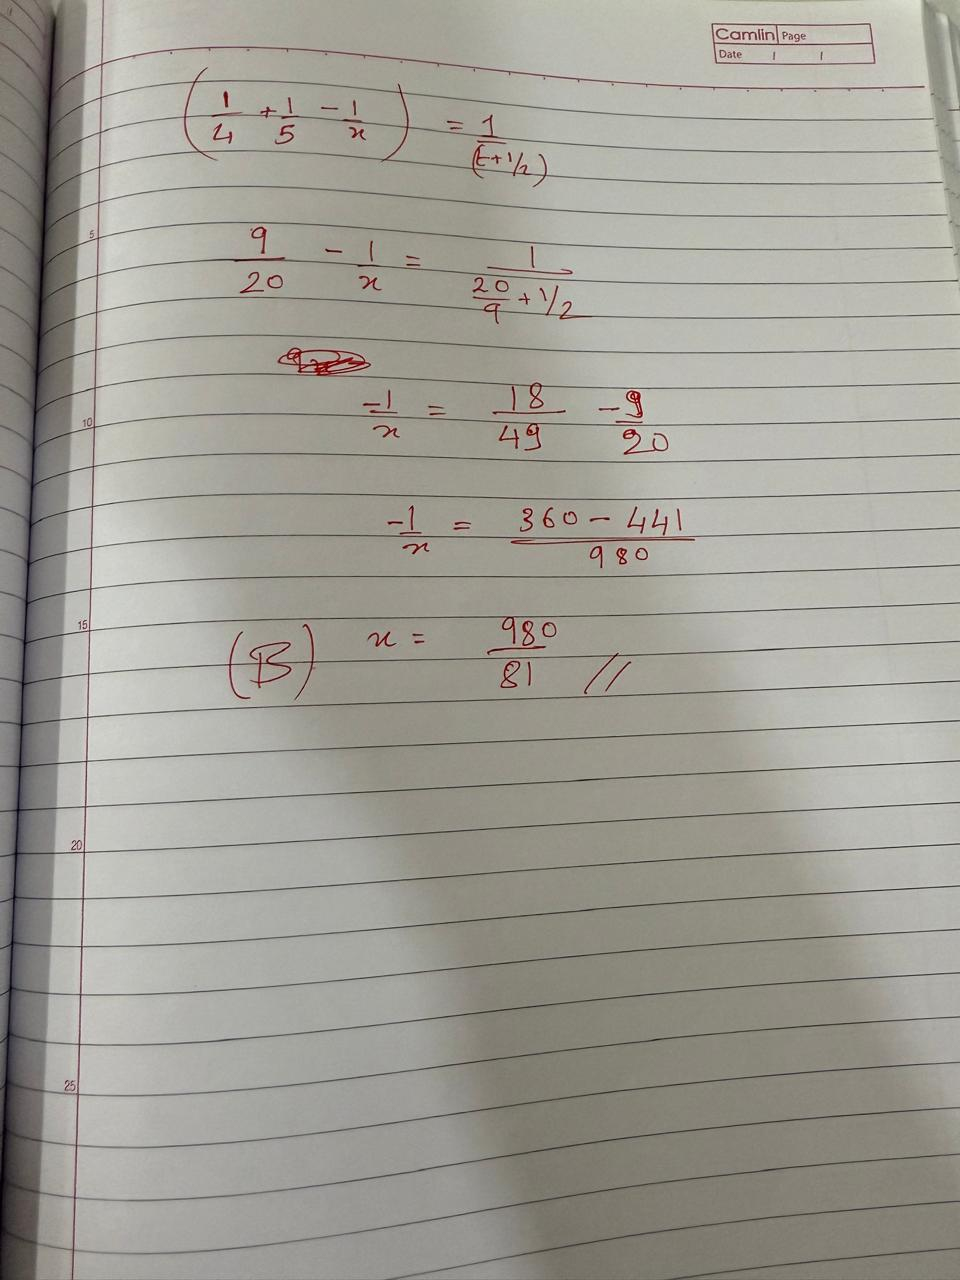 Camlin Page
Date / /
(1/4 + 1/5 - 1/x) = 1/(t+1/2)
5
9/20 - 1/x = 1/(20/9 + 1/2)
-1/x = 18/49 - 9/20
10
-1/x = (360 - 441)/980
15
(B) x = 980/81 //
20
25